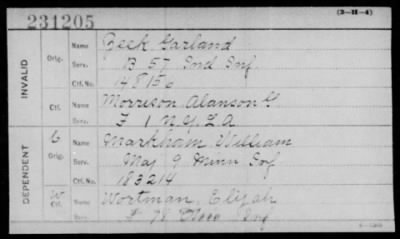 231205 (3-H-4)
INVALID
Orig. Name Zeek Garland
Serv. B 57 Ind Inf.
Ctf. No. 148156
Ctf. Name Morrison Alanson G
Serv. F 1 N.Y.L.A
DEPENDENT
C Orig. Name Markham, William
Serv. Maj 9 Minn Inf
Ctf. No. 183214
W Ctf. Name Wortman, Elijah
Serv. F 78 Inf